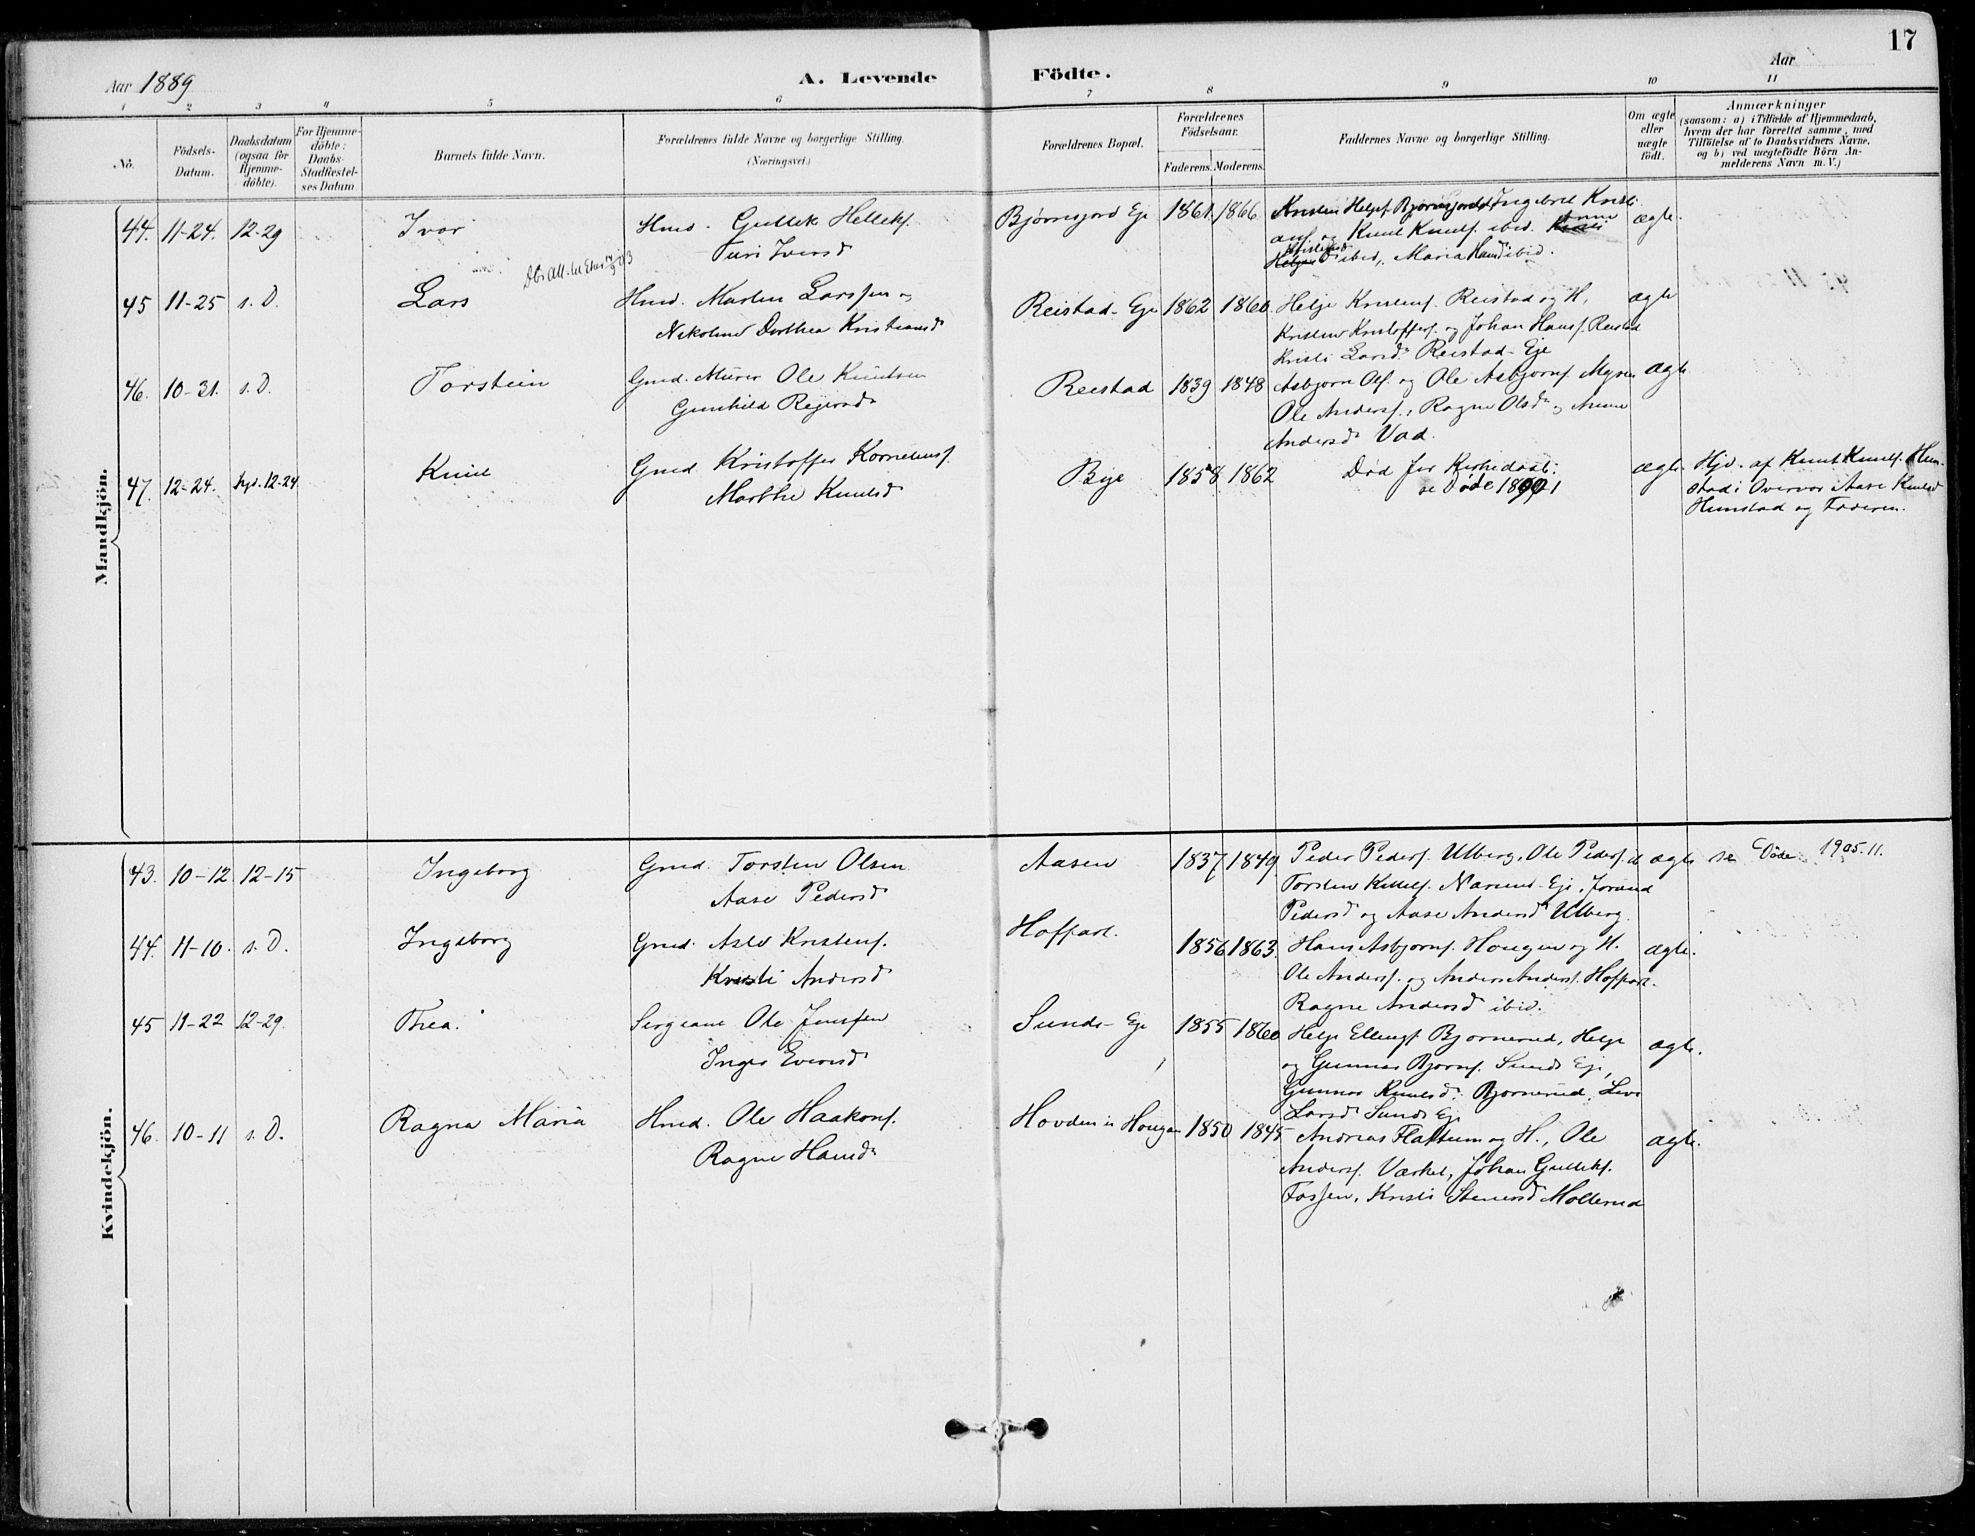 17
Aar 1889
A. Levende Födte.
Aar
1 2 3 4 5 6 7 8 9 10 11
No.
Födsels-
Datum.
Daabsdatum
(ogsaa for
Hjemme-
döbte).
For Hjemme-
döbte:
Daabs-
Stadfæstel-
ses Datum
Barnets fulde Navn.
Forældrenes fulde Navne og borgerlige Stilling.
(Næringsvei.)
Forældrenes Bopæl.
Forældrenes
Födselsaar.
Faderens. Moderens.
Faddernes Navne og borgerlige Stilling.
Om ægte
eller
uægte
födt.
Anmærkninger
(saasom: a) i Tilfælde af Hjemmedaab,
hvem der har forrettet samme, med
Tilföielse af to Daabsvidners Navne,
og b) ved uægtefödte Börn An-
melderens Navn m. V.)
Mandkjön.
44. 11-24. 12-29 Ivar Hmd. Gullek Helleks.
Turi Iversd
Bjørnsjord Eje 1861. 1866. Kristen Helges. Bjørnsjord, Ingebret Kristi
ans. og Knut Knuts. ibid. Anne
ibid, Maria Hansd ibid.
ægte.
45 11-25 s. D. Lars Hmd. Martin Larssen og
Nikoline Dorthea Kristiansd
Reistad-Eje 1862 1860 Helge Kristens. Reistad og H,
Kristen Kristoffers. og Johan Hans. Reistad
Kristi Larsd. Reistad-Eje
ægte
46. 10-31. s. D. Torstein Gmd. Murer Ole Knutsen
Gunhild Reiersd.
Reistad 1839 1848 Asbjørn Ols. og Ole Asbjørns. Myren
Ole Anders., Ragne Olsd. og Anne
Andersd Vad.
ægte
47. 12-24. hjd. 12-24 Knut Gmd Kristoffer Kornelius.
Marthe Knutsd
Bye 1858 1862 Død før Kirkedaab:
se Døde 1890 1
ægte. Hjd. af Knut Knuts. Hun-
stad i Overvær i Aase Knutsd
Hunstad og Faderen.
Kvindekjön.
43. 10-12 12-15 Ingeborg Gmd. Torsten Olsen
Aase Pedersd
Aasen 1837 1849 Peder Peders. Ulberg, Ole Peders. ib
Torsten Kittels. Narum-Eje, Jorand
Pedersd og Aase Andersd Ulberg.
ægte se Døde 1905. 11.
44. 11-10. s. D. Ingeborg Gmd. Asle Kristens.
Kristi Andersd
Hoffart. 1856 1863. Hans Asbjørns. Hougen og H.
Ole Anders. og Anders Anders. Hoffart.
Ragne Andersd ibid.
ægte.
45 11-22 12-29. Thea. Sergeant Ole Jenssen
Inger Eversd
Sunds-Eje 1855 1860 Helge Ellings. Bjørnerud, Helge
og Gunnar Bjørns. Sunds Eje,
Gunnor Knutsd. Bjørnerud, Live
Larsd Sunds Eje
ægte.
46. 10-11 s. D. Ragna Maria Hmd. Ole Haakons.
Ragne Hansd.
Hovden u Hougen 1850 1845 Andreas Flattum og H., Ole
Anders. Værket, Johan Gulleks.
Fossen, Kristi Stenersd Møllerud
ægte.